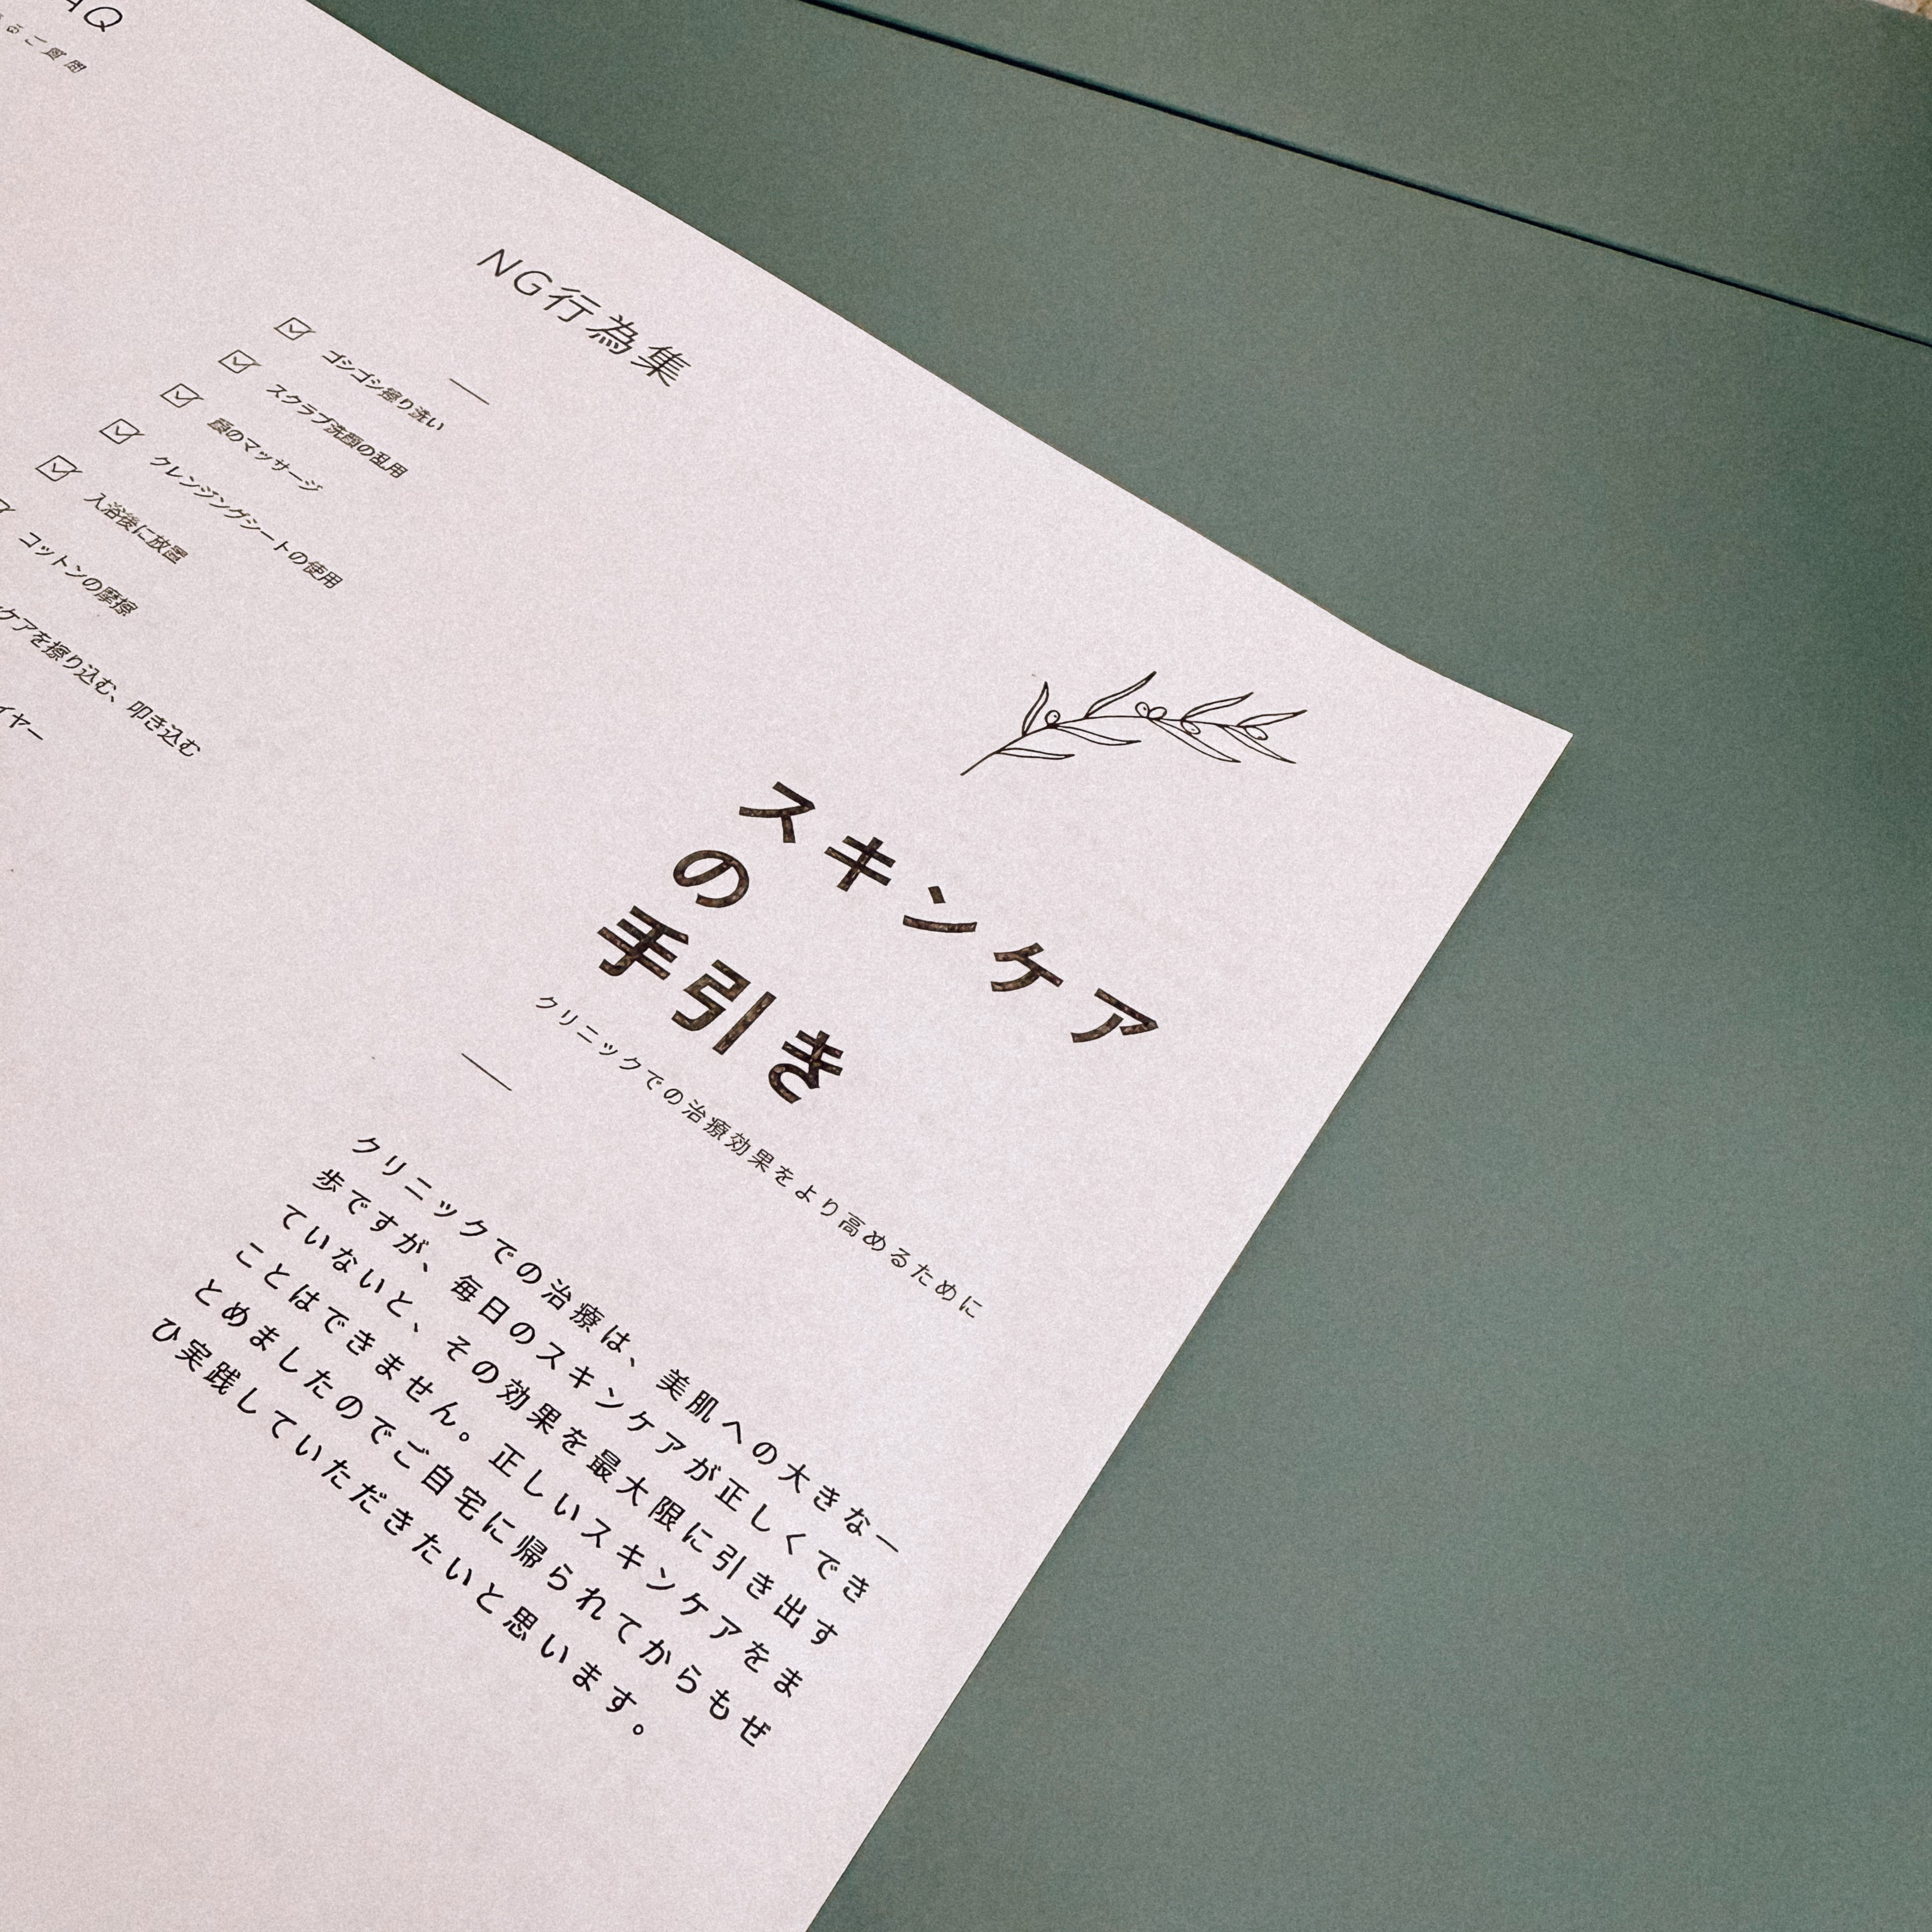 スキンケア
の
手引き
クリニックでの治療効果をより高めるために
クリニックでの治療は、美肌への大きな一
歩ですが、毎日のスキンケアが正しくでき
ていないと、その効果を最大限に引き出す
ことはできません。正しいスキンケアをま
とめましたのでご自宅に帰られてからもぜ
ひ実践していただきたいと思います。
NG行為集
ゴシゴシ擦り洗い
スクラブ洗顔の乱用
顔のマッサージ
クレンジングシートの使用
入浴後に放置
コットンの摩擦
ケアを擦り込む、叩き込む
イヤー
AQ
るご質問